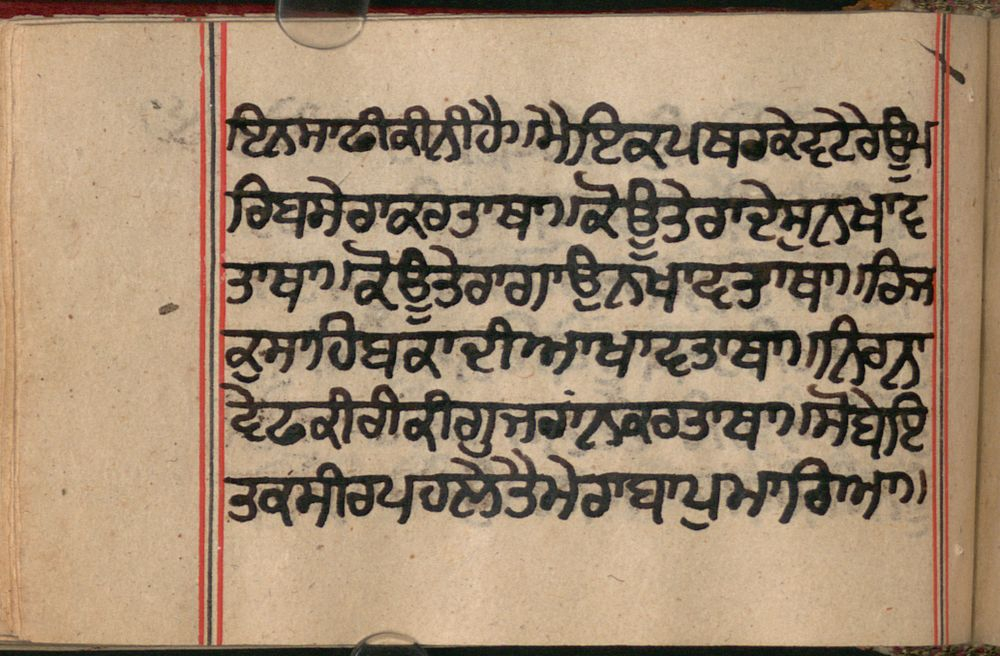 ਇਨਸਾਫੀਕੀਨੀਹੈ॥ਮੈਇਕਪਥਰਕੇਵਟੇਰੇਊਪ
ਰਿਬਸੇਰਾਕਰਤਾਥਾ॥ਕੋਊਤੇਰਾਦੇਸੁਨਖਾਵ
ਤਾਥਾ॥ਕੋਊਤੇਰਾਗਾਉਨਖਾਵਤਾਥਾ॥ਰਿਜ
ਕੁਸਾਹਿਬਕਾਦੀਆਖਾਵਤਾਥਾ॥ਨਿਹਨ
ਵੇਫਕੀਰੀਕੀਗੁਜਰਾਂਨਕਰਤਾਥਾ॥ਸੋਬੇਇ
ਤਕਸੀਰਪਹਲੇਤੈਮੇਰਾਬਾਪੁਮਾਰਿਆ॥